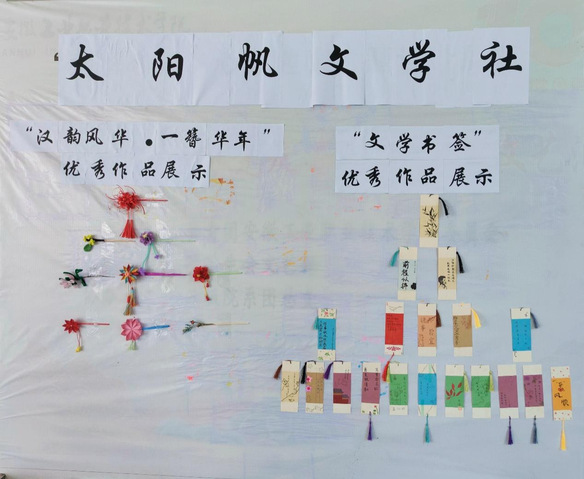 太阳帆文学社
“汉韵风华•一簪华年”
优秀作品展示
“文学书签”
优秀作品展示